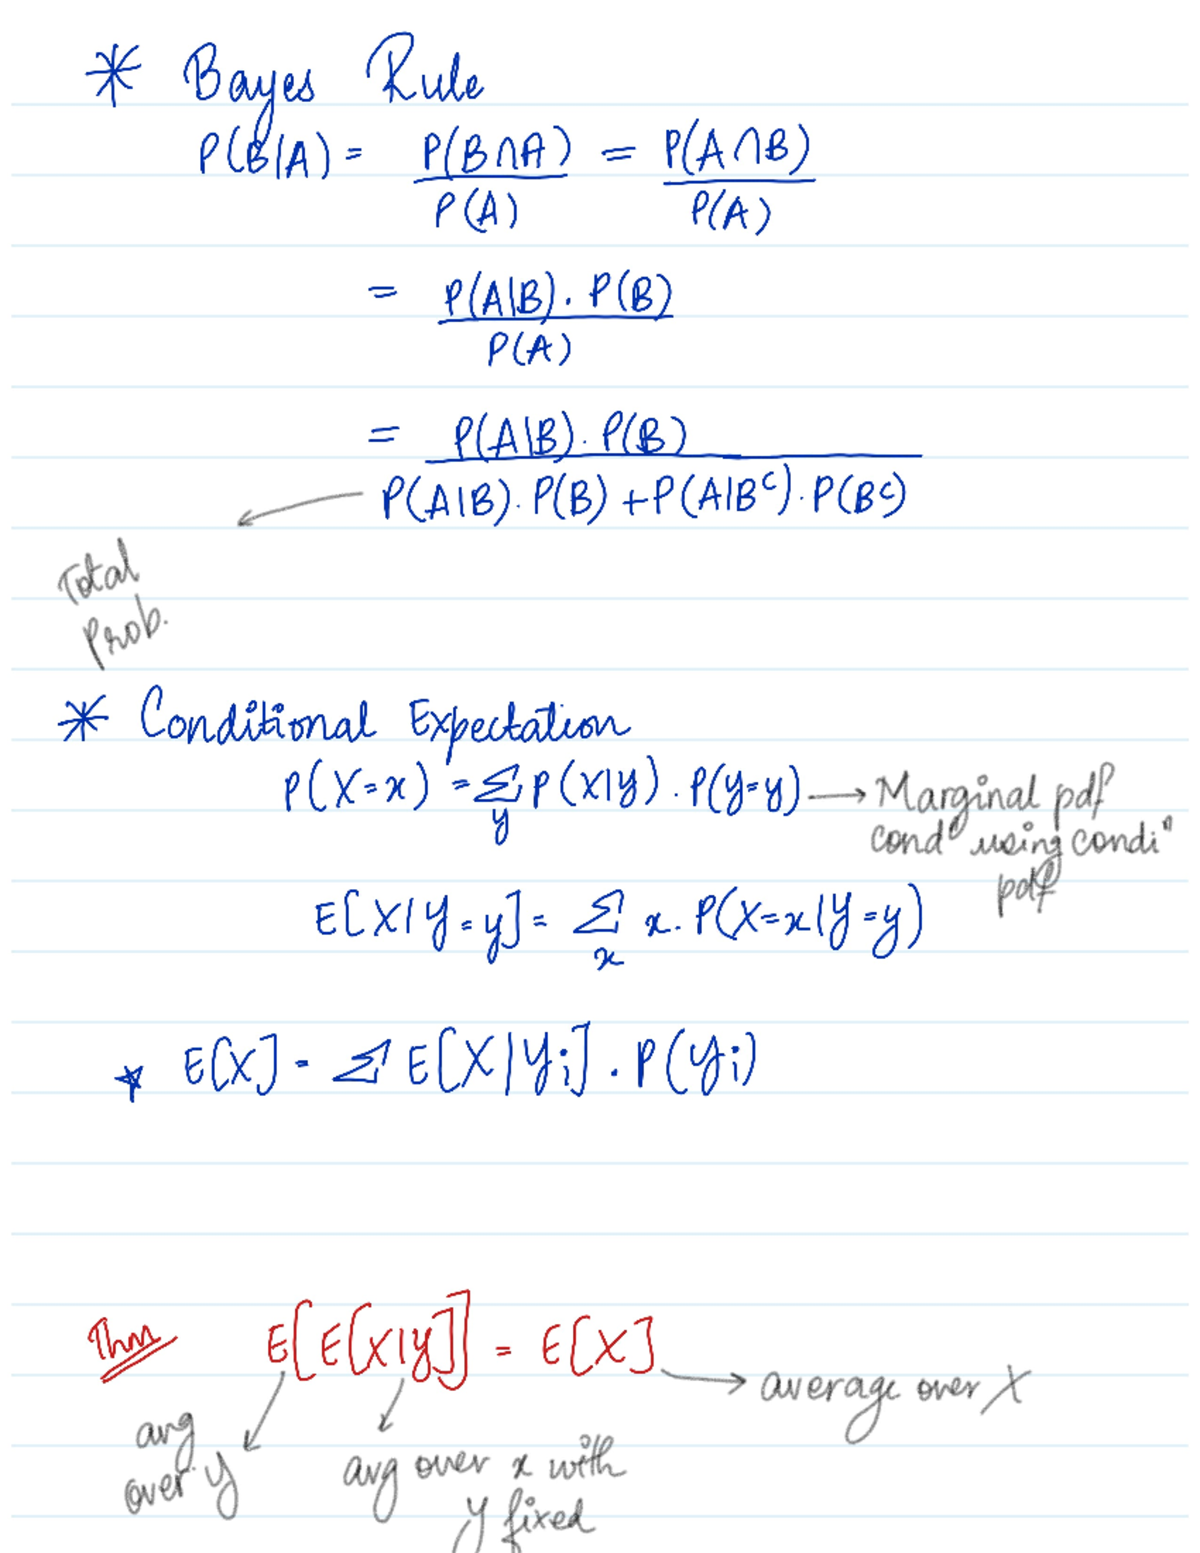 * Bayes Rule
P(B|A) = P(B∩A) / P(A) = P(A∩B) / P(A)
= P(A|B) . P(B) / P(A)
= P(A|B) . P(B) / P(A|B) . P(B) + P(A|Bᶜ) . P(Bᶜ)
Total
Prob.
* Conditional Expectation
P(X=x) = Σ_y P(X|y) . P(Y=y) → Marginal pdf
condⁿ using condiⁿ
pdf
E[X|Y=y] = Σ_x x . P(X=x|Y=y)
* E[X] = Σ E[X|Yi] . P(Yi)
Thm E[E[X|y]] = E[X]
→ average over X
avg
over y
avg over x with
y fixed